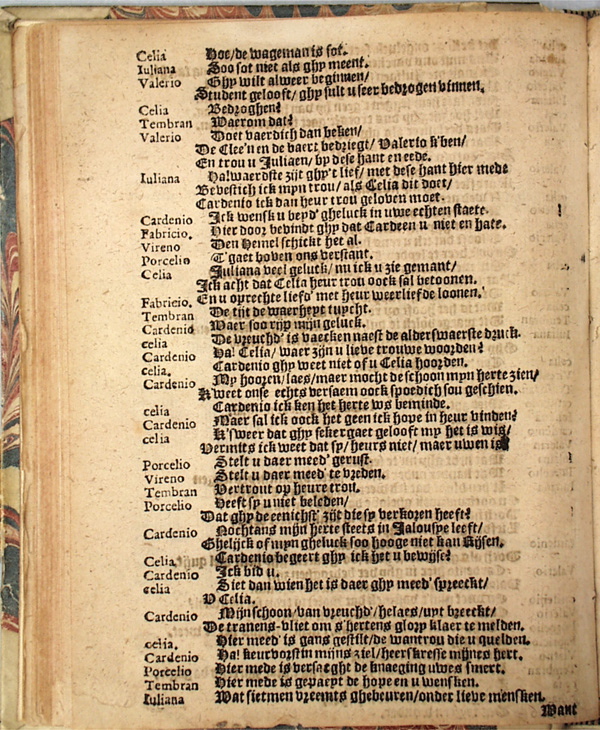 Celia Hoe/de wageman is sot.
Iuliana Soo sot niet als ghy meent.
Valerio Ghy wilt alweer beginnen/
Student gelooft/ ghy sult u seer bedrogen vinnen.
Celia Bedroghen?
Tembran Waerom dat?
Valerio Doet vaerdich dan heken/
De Clee'n en de baert bedriegt/ Valerio k'ben/
En trou u Juliaen/ by dese hant en eede.
Iuliana Halwaerdste zijt ghy't lief/ met dese hant hier mede
Bevestich ick myn trou/ als Celia dit doet/
Cardenio ick dan heur trou geloven moet.
Cardenio Ick wensk u beyd' gheluck in uwe echten staete.
Fabricio. Hier door bevindt ghy dat Cardeen u niet en hate.
Vireno Den Hemel schickt het al.
Porcelio T'gaet boven ons verstant.
Celia Juliana veel geluck/ nu ick u zie gemant/
Ick acht dat Celia heur trou oock sal betoonen.
Fabricio. En u oprechte liefd' met heur weerliefde loonen.
Tembran De tijt de waerheyt tuycht.
Cardenio Waer soo ryp mijn geluck.
celia De vreuchd' is vaecken naest de alderswaerste druck.
Cardenio Ha! Celia/ waer zijn u lieve trouwe woorden?
celia. Cardenio ghy weet niet of u Celia hoorden.
Cardenio My hooren/laes/maer mocht de schoon myn herte zien/
K'weet onse echts versaem oock spoedich sou geschien.
celia Cardenio ick ken het herte ws beminde.
Cardenio Maer sal ick oock het geen ick hope in heur vinden?
celia K'sweer dat ghy seker gaet gelooft my het is wis/
Vermits ick weet dat sy/ heurs niet/ maer uwen is
Porcelio Stelt u daer meed' gerust.
Vireno Stelt u daer meed' te vreden.
Tembran Vertrout op heure trou.
Porcelio Heeft sy u niet beleden/
Dat ghy de eenichst' zijt die sy verkoren heeft?
Cardenio Nochtans mijn herte steets in Jalousye leeft/
Ghelijck of myn gheluck soo hooge niet kan Rijsen.
Celia Cardenio begeert ghy ick het u bewijse?
Cardenio Ick bid u.
celia Siet dan wien het is daer ghy meed' spreeckt/
U Celia.
Cardenio Mijn schoon/van vreuchd'/helaes/uyt breeckt/
De tranens-vliet om s'hertens glory klaer te melden.
celia. Hier meed' is gans gestilt/de wantrou die u quelden.
Cardenio Ha! keurvorstin mijns ziel/heerskresse mijns hert.
Porcelio Hier mede is versacht de knaeging uwes smert.
Tembran Hier mede is gepaeyt de hope en u wensken.
Iuliana Wat sietmen vreemts ghebeuren/onder lieve mensken.
Want